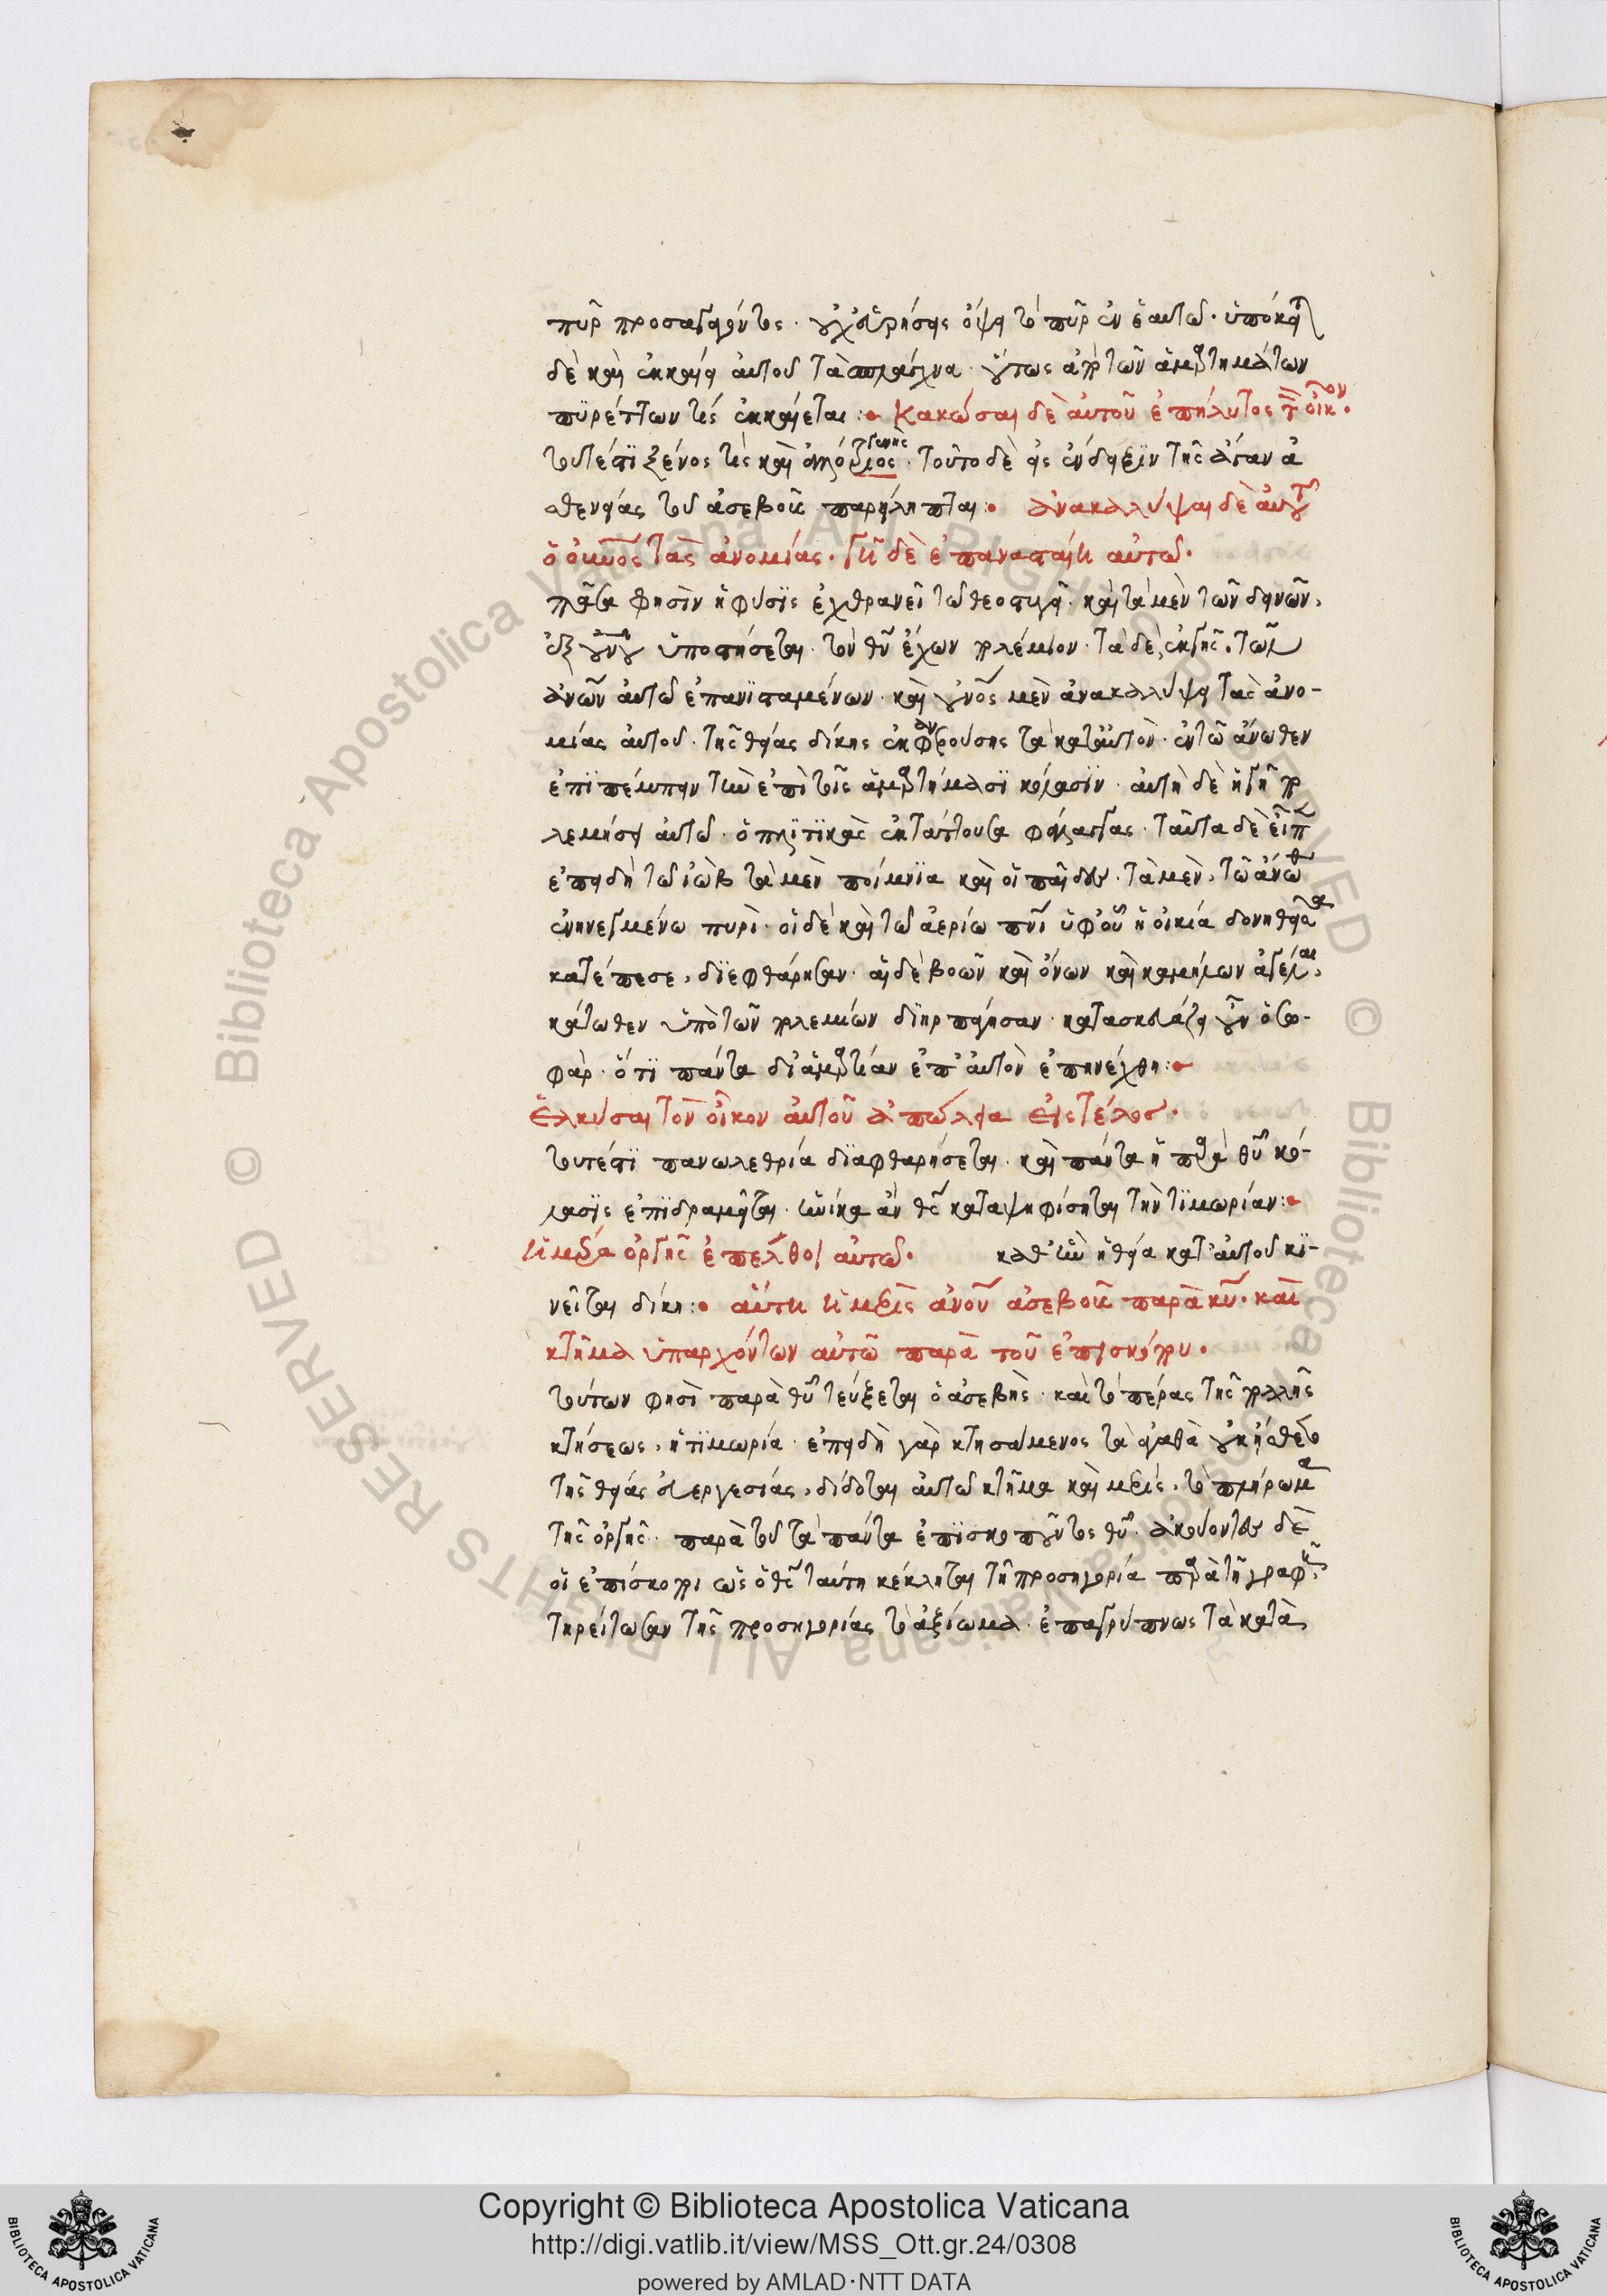 πῦρ προσαγαγόντος. οὐχ εὑρήσεις ὄψει τὸ πῦρ ἐν ἑαυτῷ. ὑποκαίει
δὲ καὶ ἐκκαίει αὐτοῦ τὰ σπλάγχνα. οὕτως ἀπὸ τῶν ἁμαρτημάτων
πυρέττων τίς ἐκκαίεται: Κακώσαι δὲ αὐτοῦ ἐπήλυτος τὸν οἶκον.
τουτέστι ξένος τίς καὶ ἀλλότριος γενής. τοῦτο δὲ εἰς ἔνδειξιν τῆς ἄγαν ἀ
σθενείας τοῦ ἀσεβοῦς παρείληπται: ἀνακαλύψαι δὲ αὐτοῦ
ὁ οὐνος τὰς ἀνομίας. γῆ δὲ ἐπανασταίη αὐτῷ.
πᾶσα φησὶν ἡ φύσις ἐχθρανεῖ τῷ θεοστυγεῖ. καὶ τὰ μὲν τῶν δεινῶν,
ἐξ οὐνου ὑποστήσεται. τὸν θν ἔχων πολέμιον. τὰ δὲ, ἐκ γῆς, τῶν
ἀνων αὐτῷ ἐπανισταμένων. καὶ οὐνος μὲν ἀνακαλύψει τὰς ἀνο-
μίας αὐτοῦ. τῆς θείας δίκης ἐκφανρούσης τὰ κατ' αὐτὸν. ἐν τῷ ἄνωθεν
ἐπιπέμπειν τὴν ἐπὶ τοῖς ἁμαρτήμασι κόλασιν. αὐτὴ δὲ ἡ γῆ πο
λεμήσει αὐτῷ. ὁπλιτικὰς ἐκτάττουσα φάλαγγας. ταῦτα δὲ εἶπεν
ἐπειδὴ τῷ ἰὼβ τὰ μὲν ποίμνια καὶ οἱ παῖδες. τὰ μὲν, τῷ ἄνωθεν
ἐνηνεγμένω πυρὶ. οἱ δὲ καὶ τῷ ἀερίω πνι ὑφ' οὗ ἡ οἰκία δονηθεῖσα
κατέπεσε, διεφθάρησαν. αἱ δὲ βοῶν καὶ ὄνων καὶ καμήλων ἀγέλαι,
κάτωθεν ὑπὸ τῶν πολεμίων διηρπάγησαν. κατασκευάζει οὖν ὁ σω-
φὰρ. ὅτι πάντα δι' ἁμαρτίαν ἐπ' αὐτὸν ἐπηνέχθη:
Ἑλκύσαι τὸν οἶκον αὐτοῦ ἀπώλεια εἰς τέλος.
τουτέστι πανωλεθρία διαφθαρήσεται. καὶ πάντα ἡ παρὰ θυ κό-
λασις ἐπιδραμεῖται. ἡνίκα ἂν θς καταψηφίσηται τὴν τιμωρίαν:
ἡμέρα ὀργῆς ἐπέλθοι αὐτῷ. καθ' ἣν ἡ θεία κατ' αὐτοῦ κι-
νεῖται δίκη: αὕτη ἡ μερὶς ἀνου ἀσεβοῦς παρὰ κυ. καὶ
κτῆμα ὑπαρχόντων αὐτῷ παρὰ τοῦ ἐπισκόπου.
τούτων φησὶ παρὰ θυ τεύξεται ὁ ἀσεβὴς. καὶ τὸ πέρας τῆς πολλῆς
κτήσεως, ἡ τιμωρία. ἐπειδὴ γὰρ κτησάμενος τὰ ἀγαθὰ οὐκ ᾔσθετο
τῆς θείας εὐεργεσίας, δίδοται αὐτῷ κτῆμα καὶ μερὶς, τὸ πλήρωμα
τῆς ὀργῆς. παρὰ τοῦ τὰ πάντα ἐπισκοποῦντος θυ. ἀκούοντες δὲ
οἱ ἐπίσκοποι ὡς ὁ θς ταύτη κέκληται τῆ προσηγορία παρὰ τῆ γραφῆ,
τηρείτωσαν τῆς προσηγορίας τὸ ἀξίωμα. ἐπαγρύπνως τὰ κατὰ
Copyright © Biblioteca Apostolica Vaticana
http://digi.vatlib.it/view/MSS_Ott.gr.24/0308
powered by AMLAD·NTT DATA